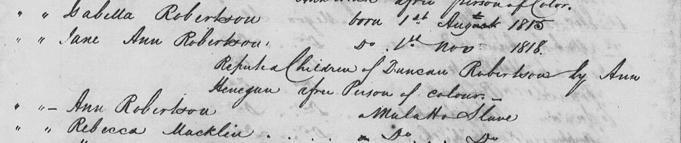 afree person of Color.
" " Isabella Robertson born 1st August 1815
" " Jane Ann Robertson, Do. 1st Nov 1818.
Reputed Children of Duncan Robertson by Ann
Henegun afree Person of colour. –
" " – Ann Robertson a Mulatto Slave
" " Rebecca Macklin . . . . a Do. Do.